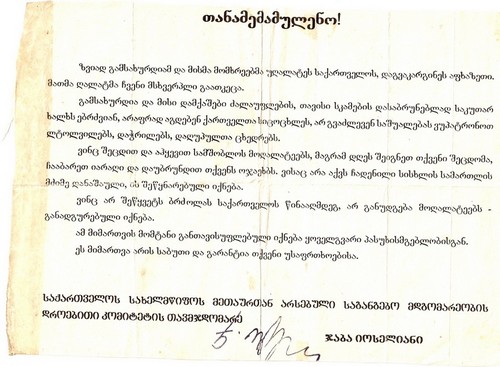 თანამემამულენო!
ზვიად გამსახურდიამ და მისმა მომხრეებმა უღალატეს საქართველოს, დაგვაკარგინეს აფხაზეთი.
მათმა ღალატმა ჩვენი მსხვერპლი გაათკეცა.
გამსახურდია და მისი დამქაშები ძალაუფლების, თავისი სკამების დასაბრუნებლად საკუთარ
ხალხს ებრძვიან, არაფრად აგდებენ ქართველთა სიცოცხლეს, არ გვაძლევენ საშუალებას ვუპატრონოთ
ლტოლვილებს, დაჭრილებს, დაღუპულთა ცხედრებს.
ვინც შეცდით და აჰყევით სამშობლოს მოღალატეებს, მაგრამ დღეს შეიგნეთ თქვენი შეცდომა,
ჩააბარეთ იარაღი და დაუბრუნდით თქვენს ოჯახებს. ვისაც არა აქვს ჩადენილი სისხლის სამართლის
მძიმე დანაშაული, ის შეწყნარებული იქნება.
ვინც არ შეწყვეტს ბრძოლას საქართველოს წინააღმდეგ, არ განუდგება მოღალატეებს -
განადგურებული იქნება.
ამ მიმართვის მომტანი განთავისუფლებული იქნება ყოველგვარი პასუხისმგებლობისგან.
ეს მიმართვა არის საბუთი და გარანტია თქვენი უსაფრთხოებისა.
საქართველოს სახელმწიფოს მეთაურთან არსებული საგანგებო მდგომარეობის
დროებითი კომიტეტის თავმჯდომარე
ჯაბა იოსელიანი